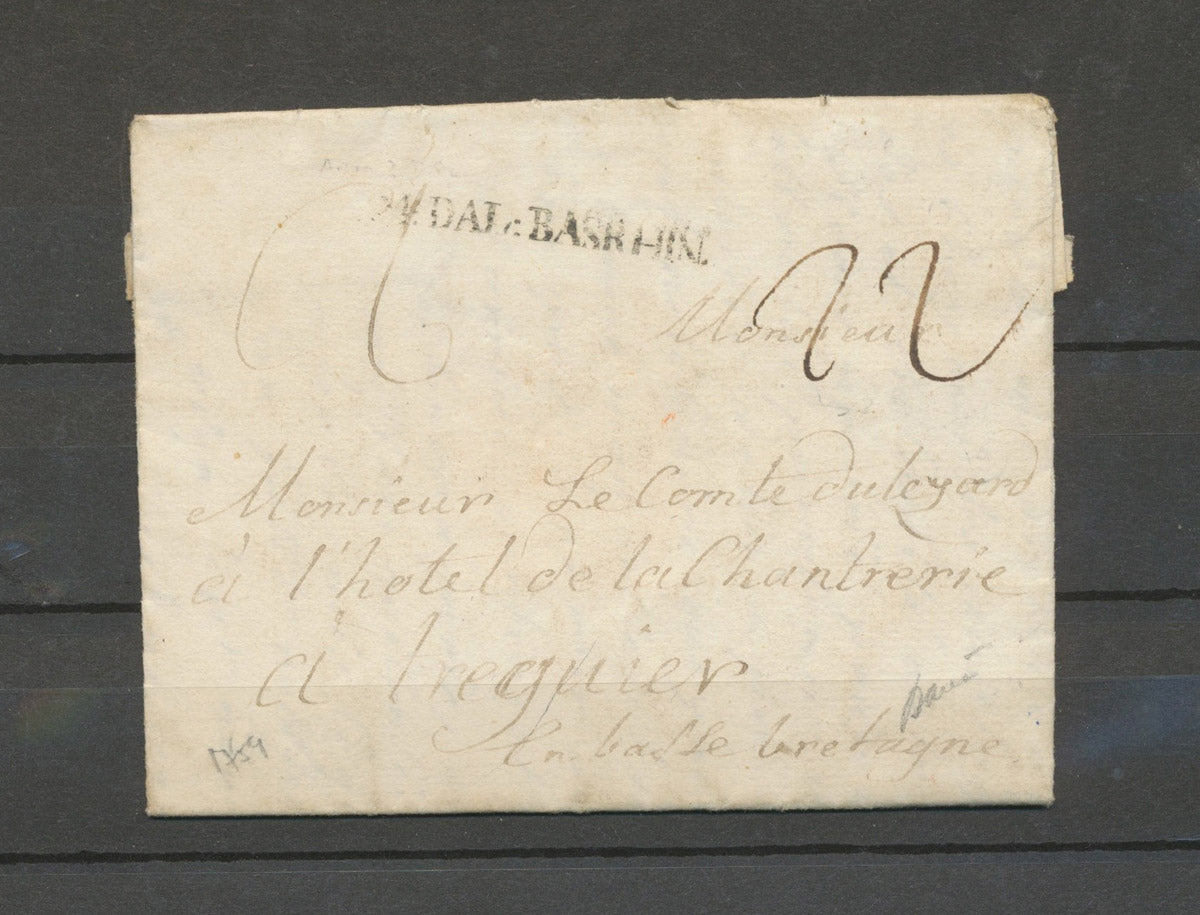 DAL. BASRHIN
22
Monsieur
Monsieur Le Comte du legard
à l'hotel de la Chantrerie
à treguier
En basse bretagne
1759